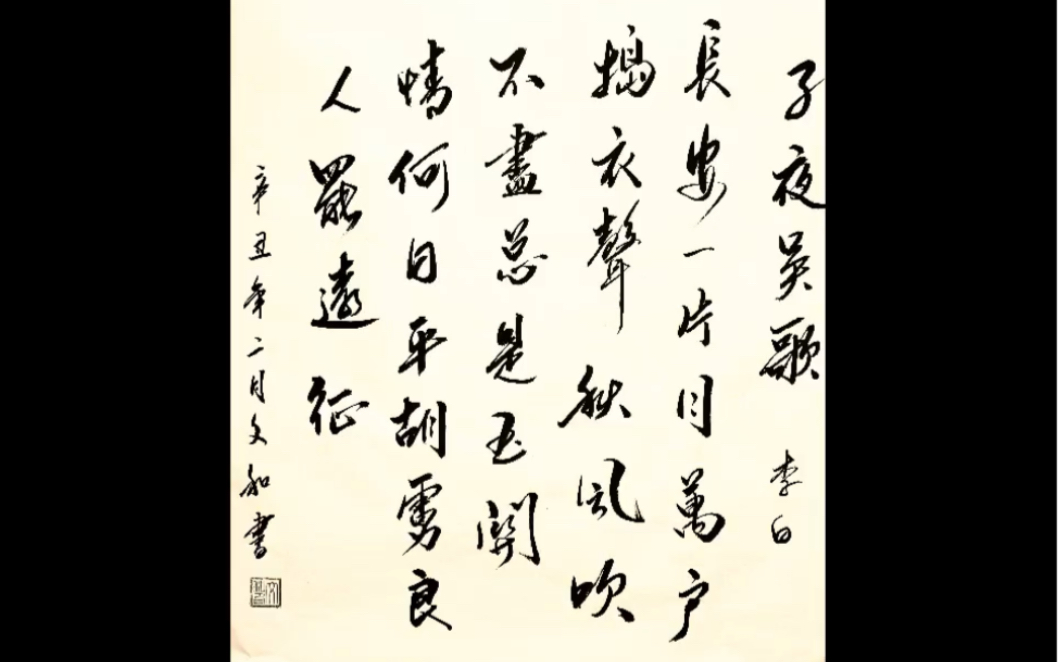 子夜吴歌 李白
長安一片月萬户
搗衣聲秋風吹
不盡總是玉關
情何日平胡虜良
人罷遠征
辛丑年二月文和書